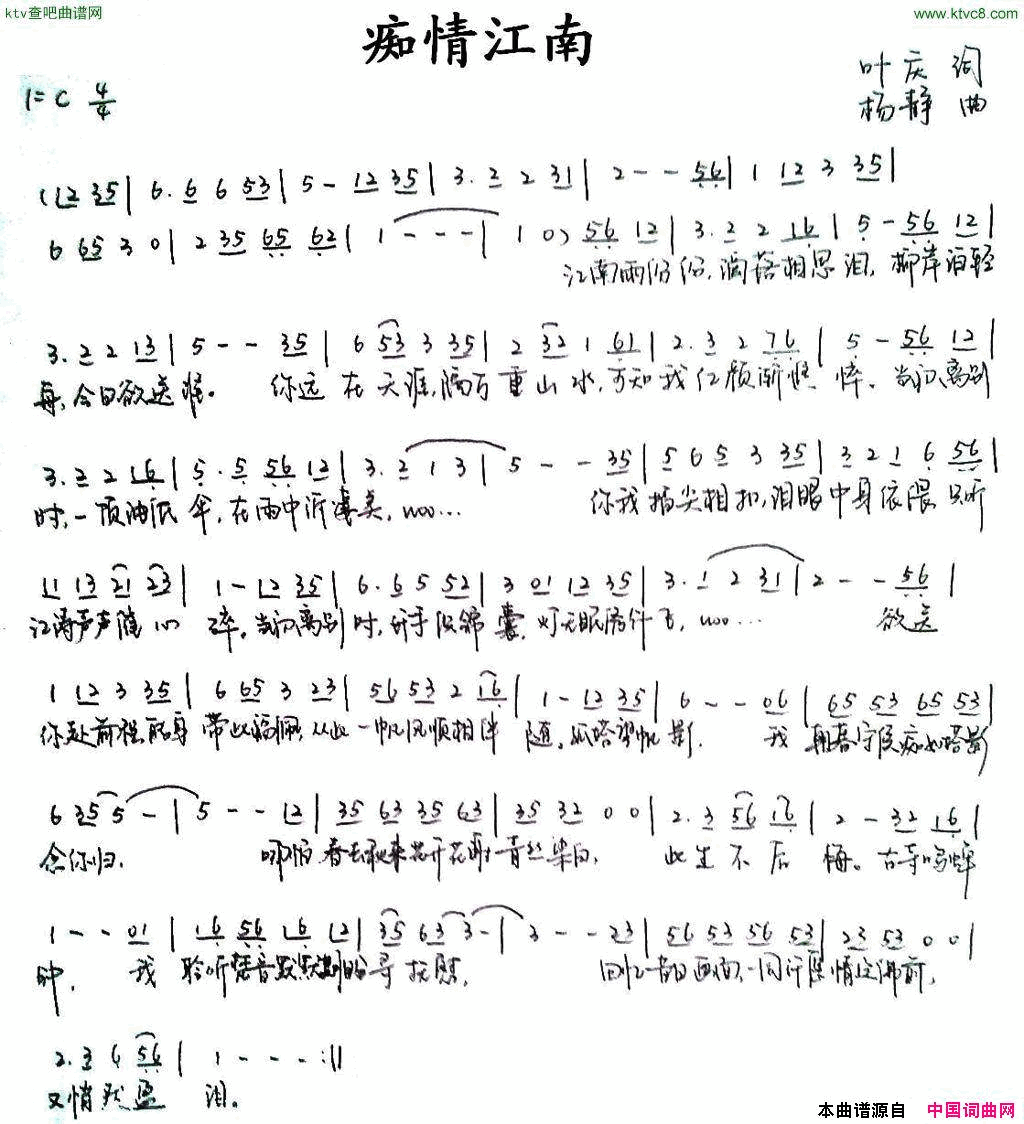 ktv查吧曲谱网
www.ktvc8.com
痴情江南
叶庆 词
1=C 4/4
杨静 曲
(12 35| 6. 6 6 53| 5 - 12 35| 3. 2 2 31| 2 - - 56| 1 12 3 35|
6 65 3 0| 2 35 65 62| 1 - - -| 1 0) 56 12| 3. 2 2 16| 5 - 56 12|
江南雨纷纷,滴落相思泪,柳岸泊轻
3. 2 2 13| 5 - - 35| 6 53 3 35| 2 32 1 61| 2. 3 2 76| 5 - 56 12|
今日欲送谁。 你远在天涯,隔万重山水,可知我红颜渐憔悴。当初离别
3. 2 2 16| 5. 5 56 12| 3. 2 1 3| 5 - - 35| 5 6 5 3 35| 3 2 1 6 56|
时,一顶油纸伞,在雨中 凄美,woo... 你我指尖相扣,泪眼中身依偎 只听
11 13 21 23| 1 - 12 35| 6. 6 5 52| 3 01 12 35| 3. 1 2 31| 2 - - 56|
江涛声声随心碎。当初离别时, 手 锦囊, woo... 欲送
1 12 3 35| 6 65 3 23| 56 53 2 16| 1 - 12 35| 6 - - 06| 65 53 65 53|
你赴前程 带此福佩,从此一帆风顺相伴随。 塔望帆影. 我朝暮守候痴如塔影
6 35 5 -| 5 - - 12| 35 63 35 63| 35 32 0 0| 2. 3 56 16| 2 - 32 16|
念你归. 哪怕春去秋来花开花谢青丝染白, 此生不后悔。古寺鸣
1 - - 01| 16 56 16 12| 35 63 3 -| 3 - - 23| 56 53 56 53| 23 53 0 0|
钟, 我聆听梵音默默 寻抚慰, 回忆昔日画面,一同 情定佛前,
2. 3 6 56| 1 - - - :||
又悄然盈泪。
本曲谱源自 中国词曲网